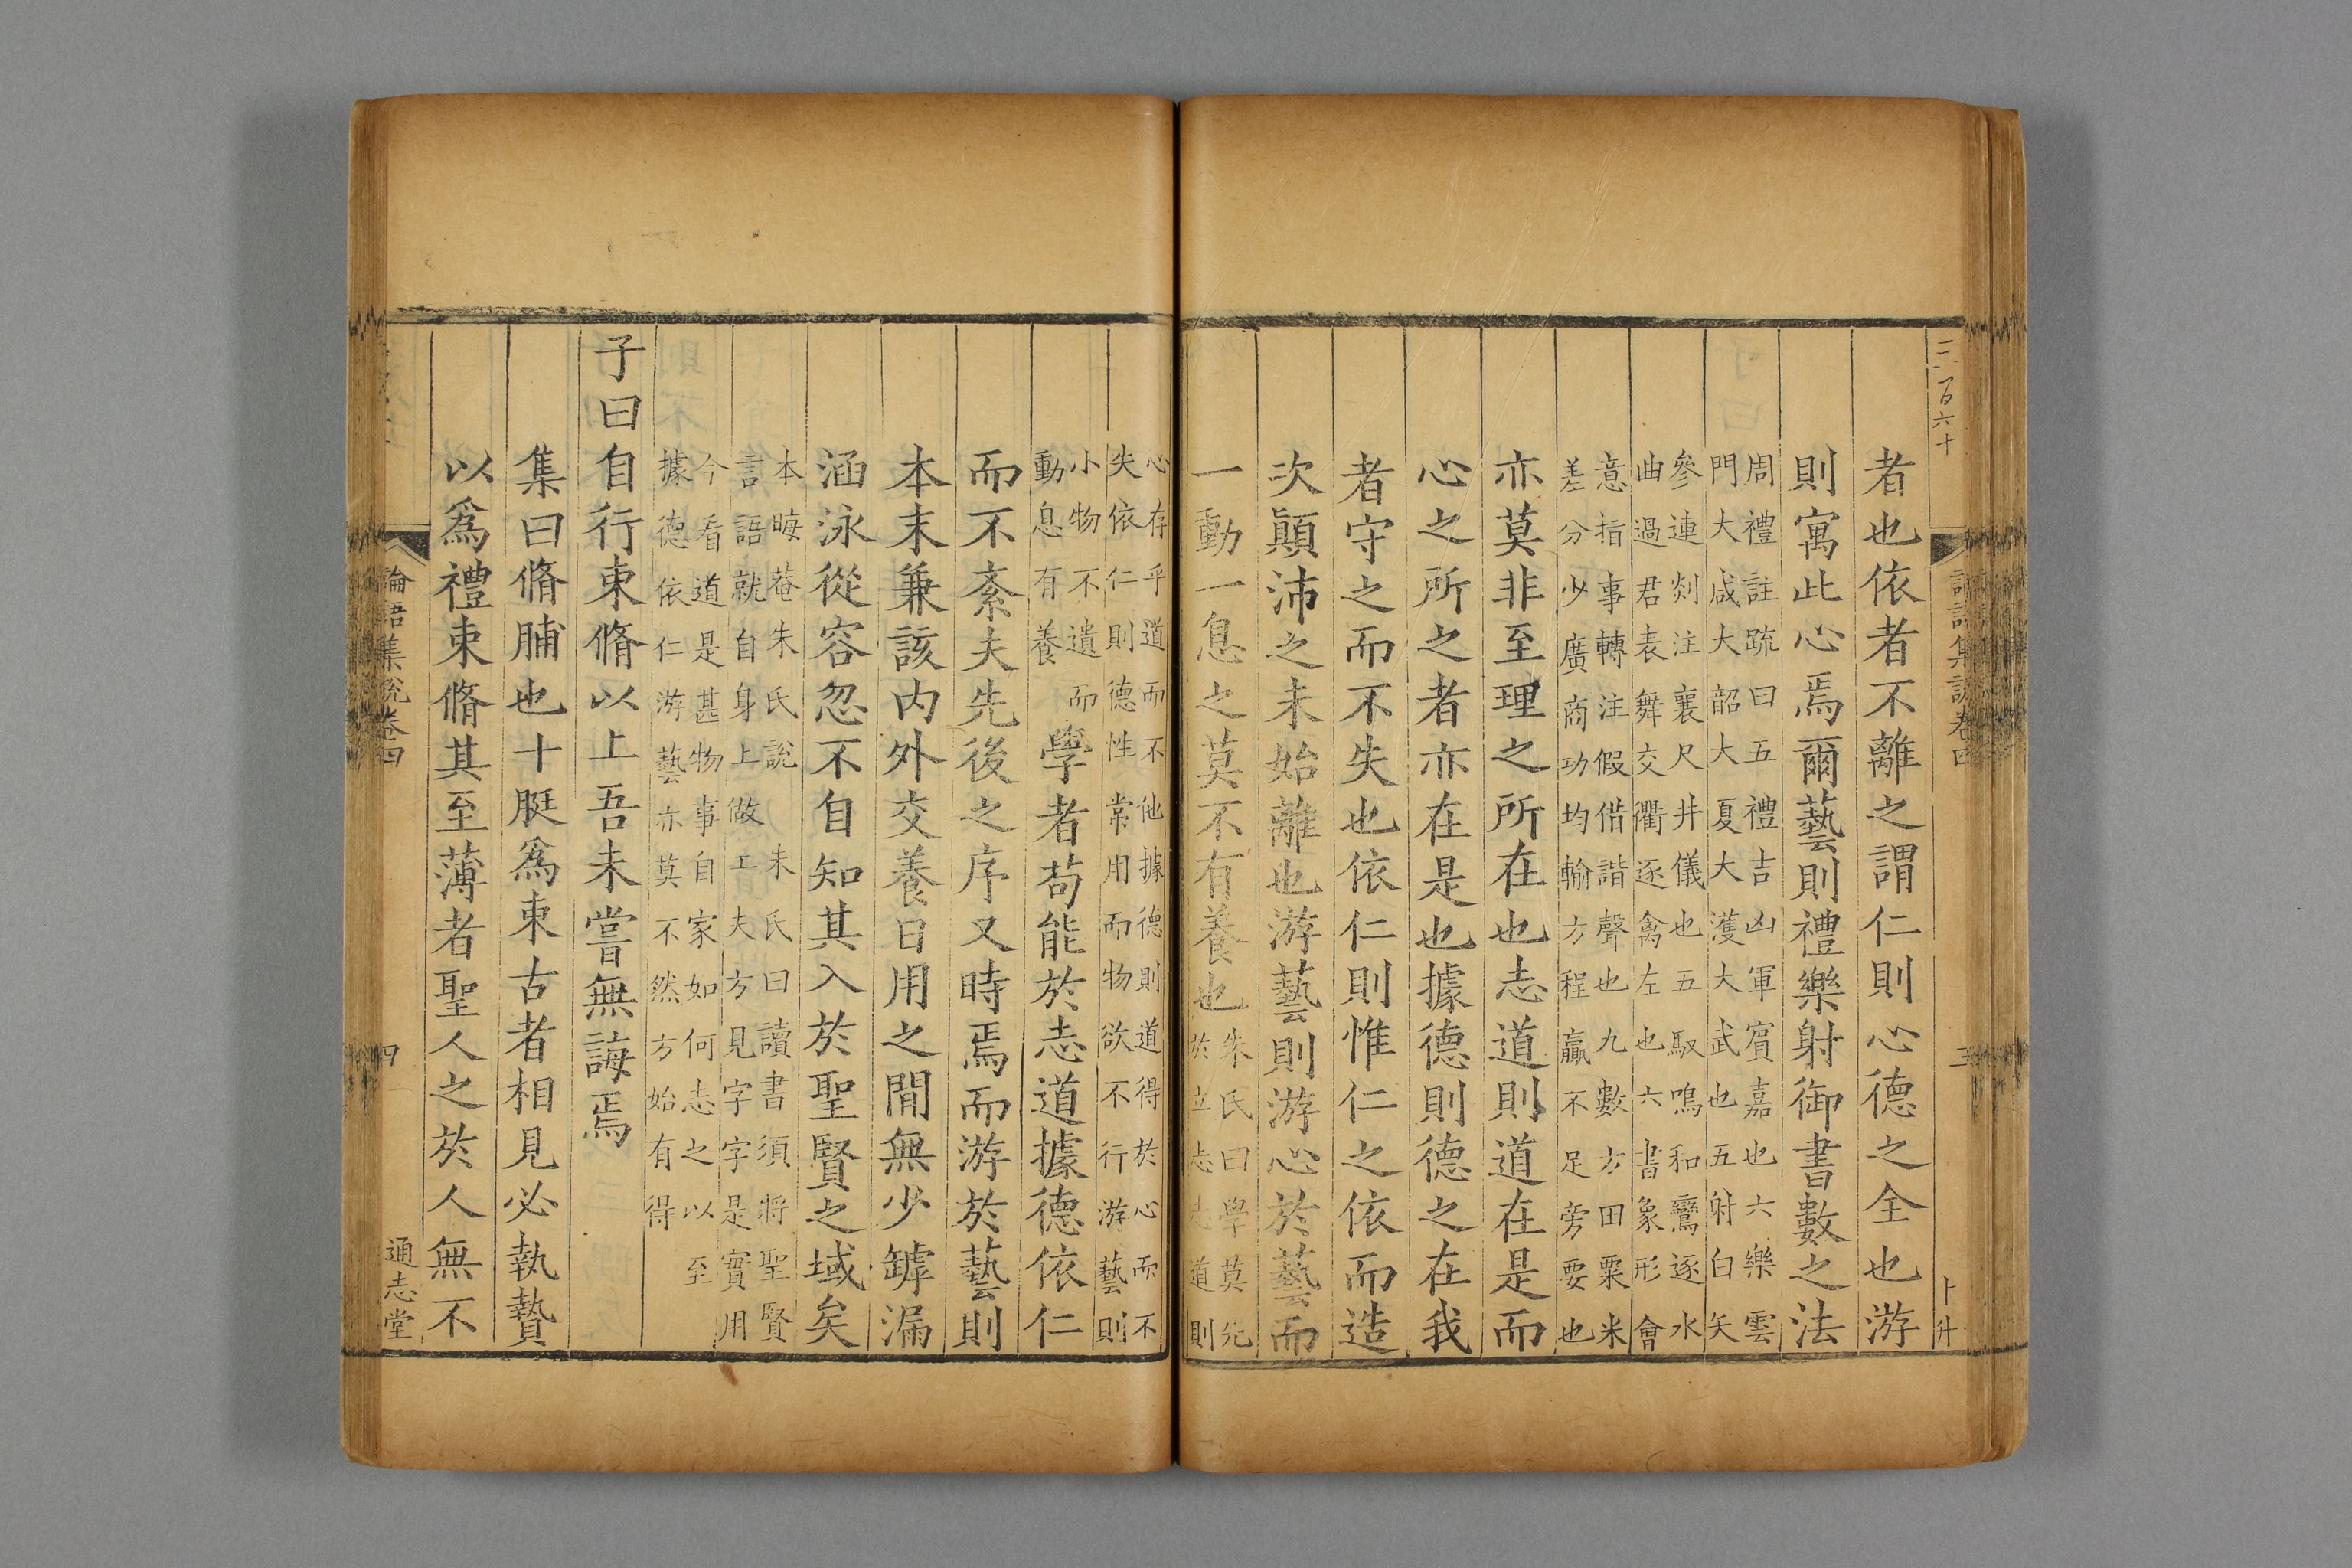 三百六十
論語集說卷四
三
卜升
者也依者不離之謂仁則心德之全也游
則寓此心焉爾藝則禮樂射御書數之法
周禮註䟽曰五禮吉凶軍賓嘉也六樂雲
門大咸大韶大夏大濩大武也五射白矢
參連剡注襄尺井儀也五馭鳴和鸞逐水
曲過君表舞交衢逐禽左也六書象形會
意指事轉注假借諧聲也九數方田粟米
差分少廣商功均輸方程贏不足旁要也
亦莫非至理之所在也志道則道在是而
心之所之者亦在是也據德則德之在我
者守之而不失也依仁則惟仁之依而造
次顚沛之未始離也游藝則游心於藝而
一動一息之莫不有養也
朱氏曰學莫先
於立志志道則
心存乎道而不他據德則道得於心而不
失依仁則德性常用而物欲不行游藝則
小物不遺而
動息有養
學者苟能於志道據德依仁
而不紊夫先後之序又時焉而游於藝則
本末兼該内外交養日用之間無少罅漏
涵泳從容忽不自知其入於聖賢之域矣
本晦菴朱氏說 朱氏曰讀書須將聖賢
言語就自身上做工夫方見字字是實用
今看道是甚物事自家如何志之以至
據德依仁游藝亦莫不然方始有得
子曰自行束脩以上吾未嘗無誨焉
集曰脩脯也十脡爲束古者相見必執贄
以爲禮束脩其至薄者聖人之於人無不
論語集說卷四
四
通志堂